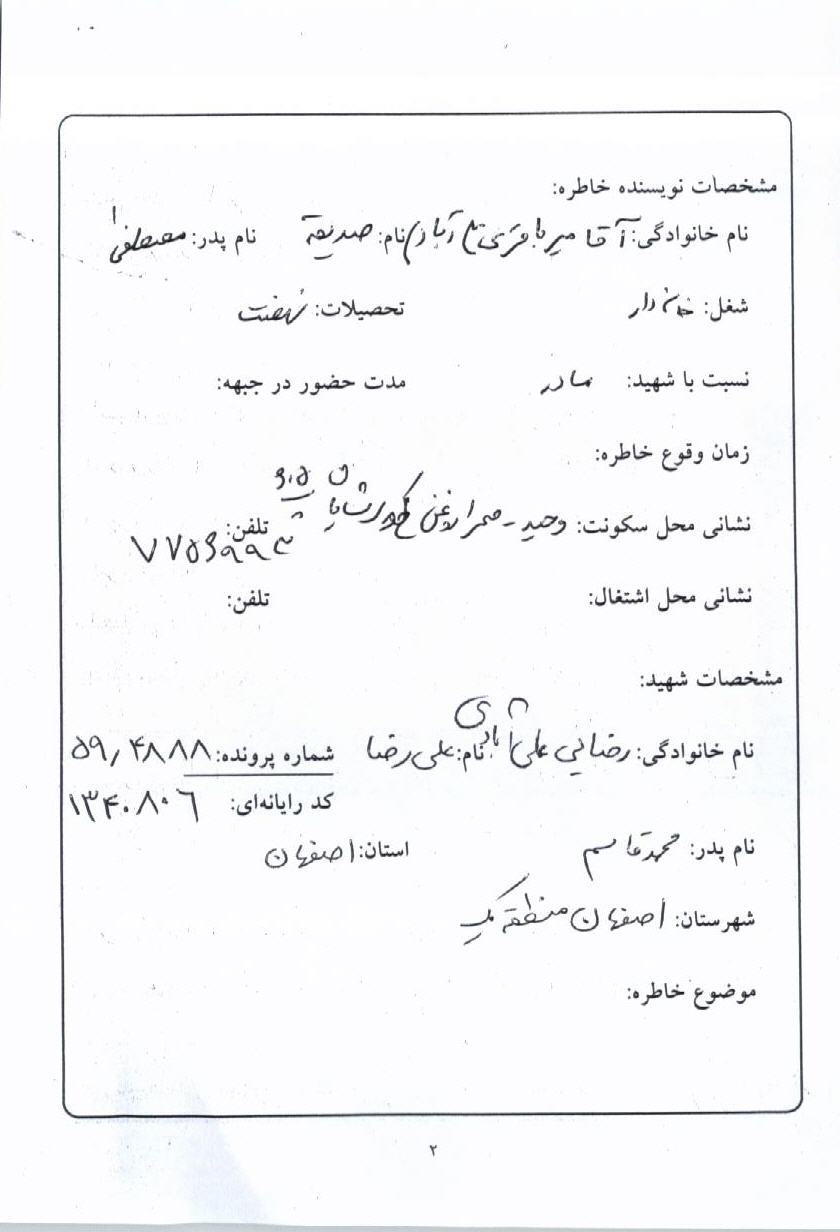 مشخصات نویسنده خاطره:
نام خانوادگی: آقا میر باقری آباد نام: صدیقه نام پدر: مصطفی
شغل: خانه دار تحصیلات: نهضت
نسبت با شهید: مادر مدت حضور در جبهه:
زمان وقوع خاطره:
نشانی محل سکونت: وحید - تلفن: ۷۷۵۶۹۹۳
نشانی محل اشتغال: تلفن:
مشخصات شهید:
نام خانوادگی: رضایی علی آبادی نام: علی رضا شماره پرونده: ۵۹/۴۸۸۸
کد رایانه‌ای: ۱۳۴۰۸۰۶
نام پدر: محمد قاسم استان: اصفهان
شهرستان: اصفهان منطقه یک
موضوع خاطره:
۲